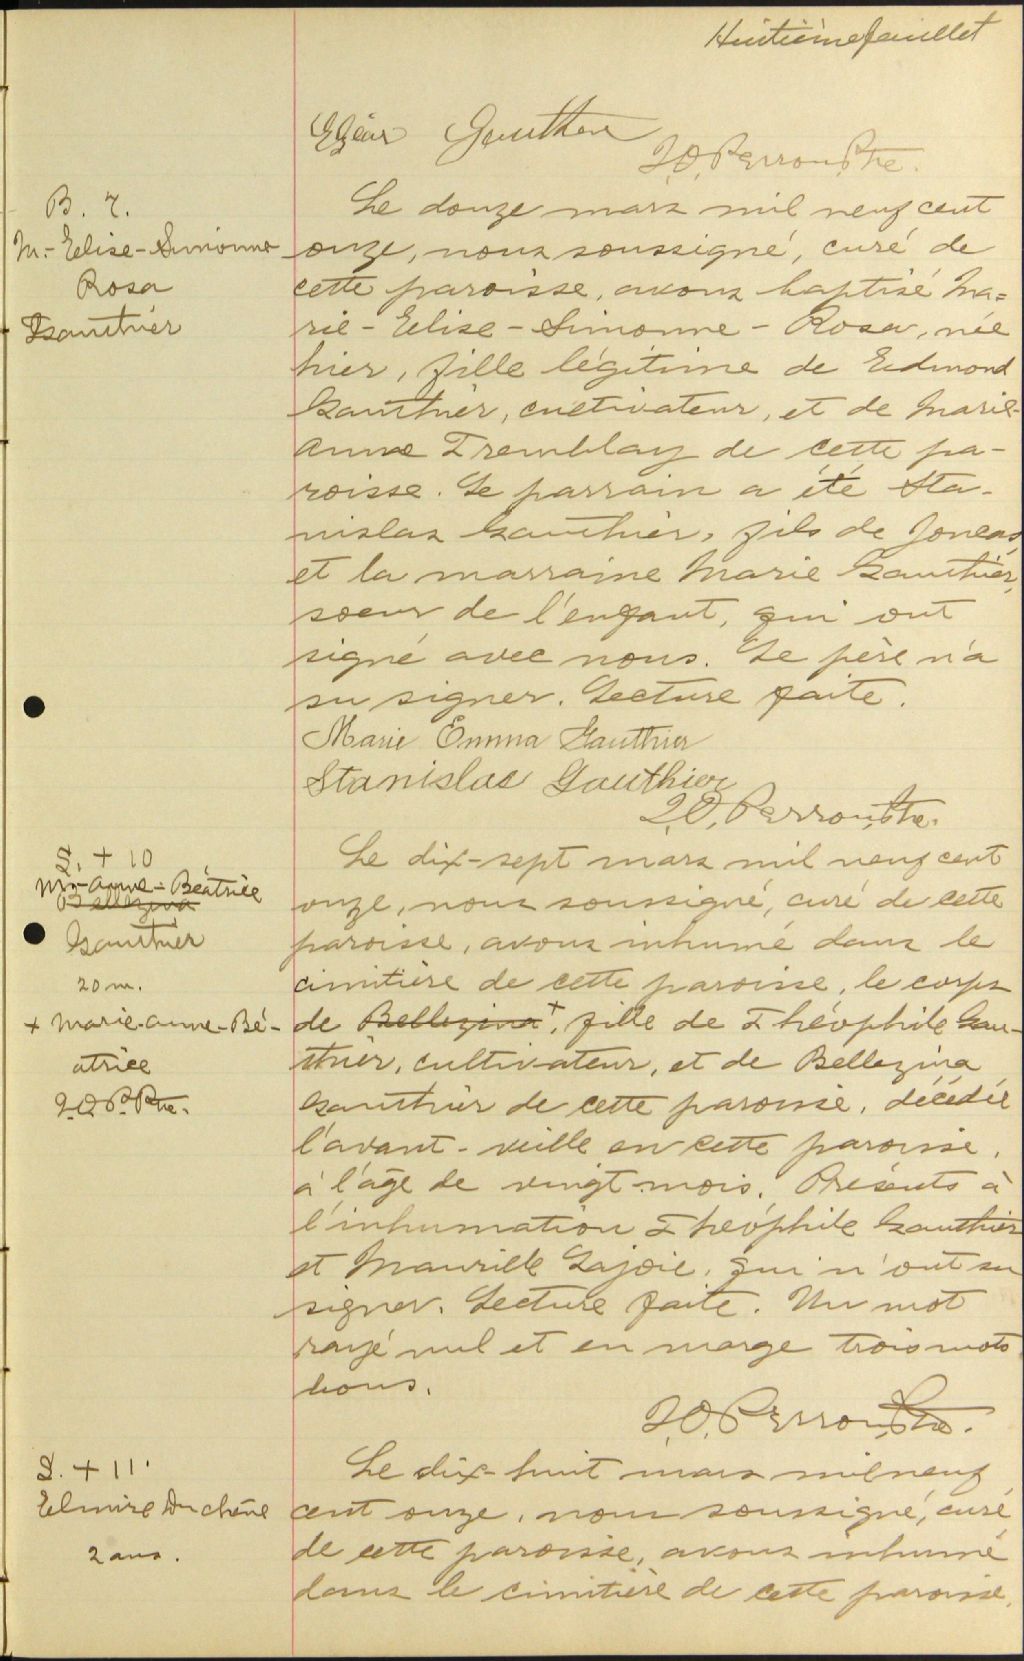 Huitième feuillet
Elzéar Gauthier
J.O. Perron, Ptre.
B. 7.
M.-Elise-Simonne
Rosa
Gauthier
Le douze mars mil neuf cent
onze, nous soussigné, curé de
cette paroisse, avons baptisé Ma=
rie-Elise-Simonne-Rosa, née
hier, fille légitime de Edmond
Gauthier, cultivateur, et de Marie-
Anne Tremblay de cette pa-
roisse. Le parrain a été Sta-
nislas Gauthier, fils de Joneas,
et la marraine Marie Gauthier,
soeur de l'enfant, qui ont
signé avec nous. Le père n'a
su signer. Lecture faite.
Marie Emma Gauthier
Stanislas Gauthier
J.O. Perron, Ptre.
S. + 10
M.-Anne-Béatrice
Bellezina
Gauthier
20 m.
+ Marie-Anne-Bé-
atrice
J.O.P. Ptre.
Le dix-sept mars mil neuf cent
onze, nous soussigné, curé de cette
paroisse, avons inhumé dans le
cimitière de cette paroisse, le corps
de Bellezina +, fille de Théophile Gau-
thier, cultivateur, et de Bellezina
Gauthier de cette paroisse, décédée
l'avant-veille en cette paroisse,
à l'âge de vingt mois. Présents à
l'inhumation Théophile Gauthier
et Maurille Lajoie, qui n'ont su
signer. Lecture faite. Un mot
rayé nul et en marge trois mots
bons.
J.O. Perron, Ptre.
S. + 11.
Elmire Duchêne
2 ans.
Le dix-huit mars mil neuf
cent onze, nous soussigné, curé
de cette paroisse, avons inhumé
dans le cimitière de cette paroisse,